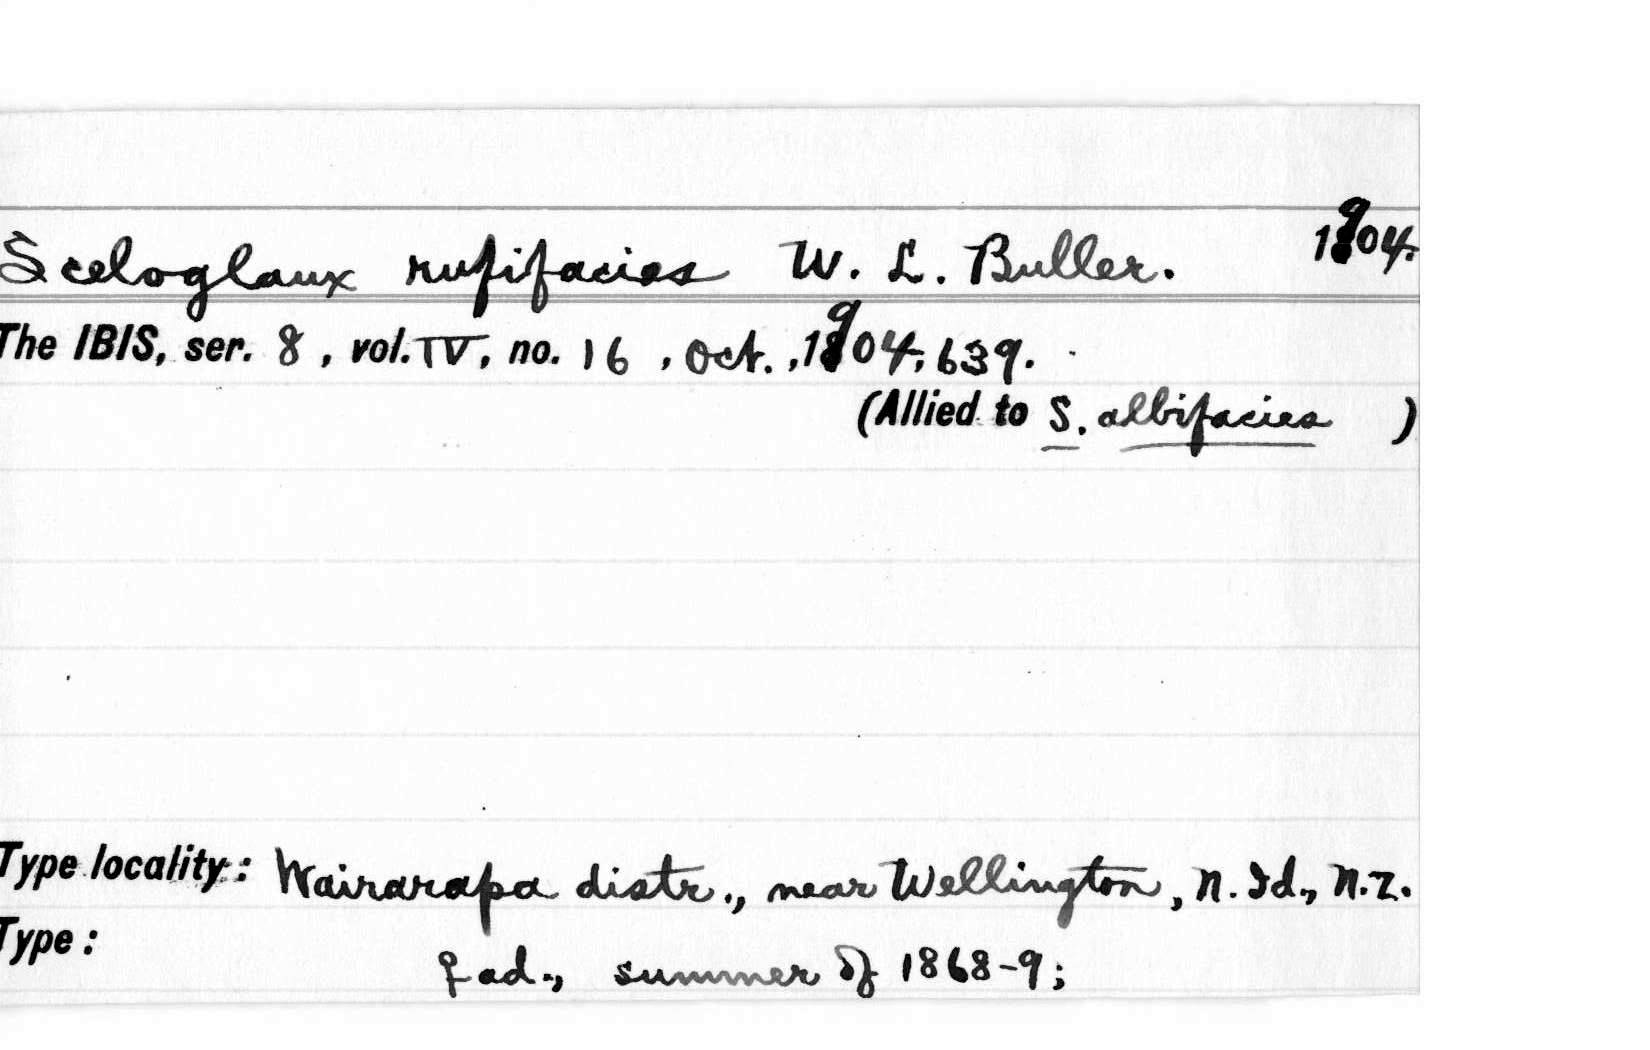 Sceloglaux rufifacies W. L. Buller. 1904.
The IBIS, ser. 8, vol. IV, no. 16, Oct., 1904, 639.
(Allied to S. albifacies )
Type locality: Wairarapa distr., near Wellington, N. Id., N.Z.
Type:
♀ ad., summer of 1868-9;